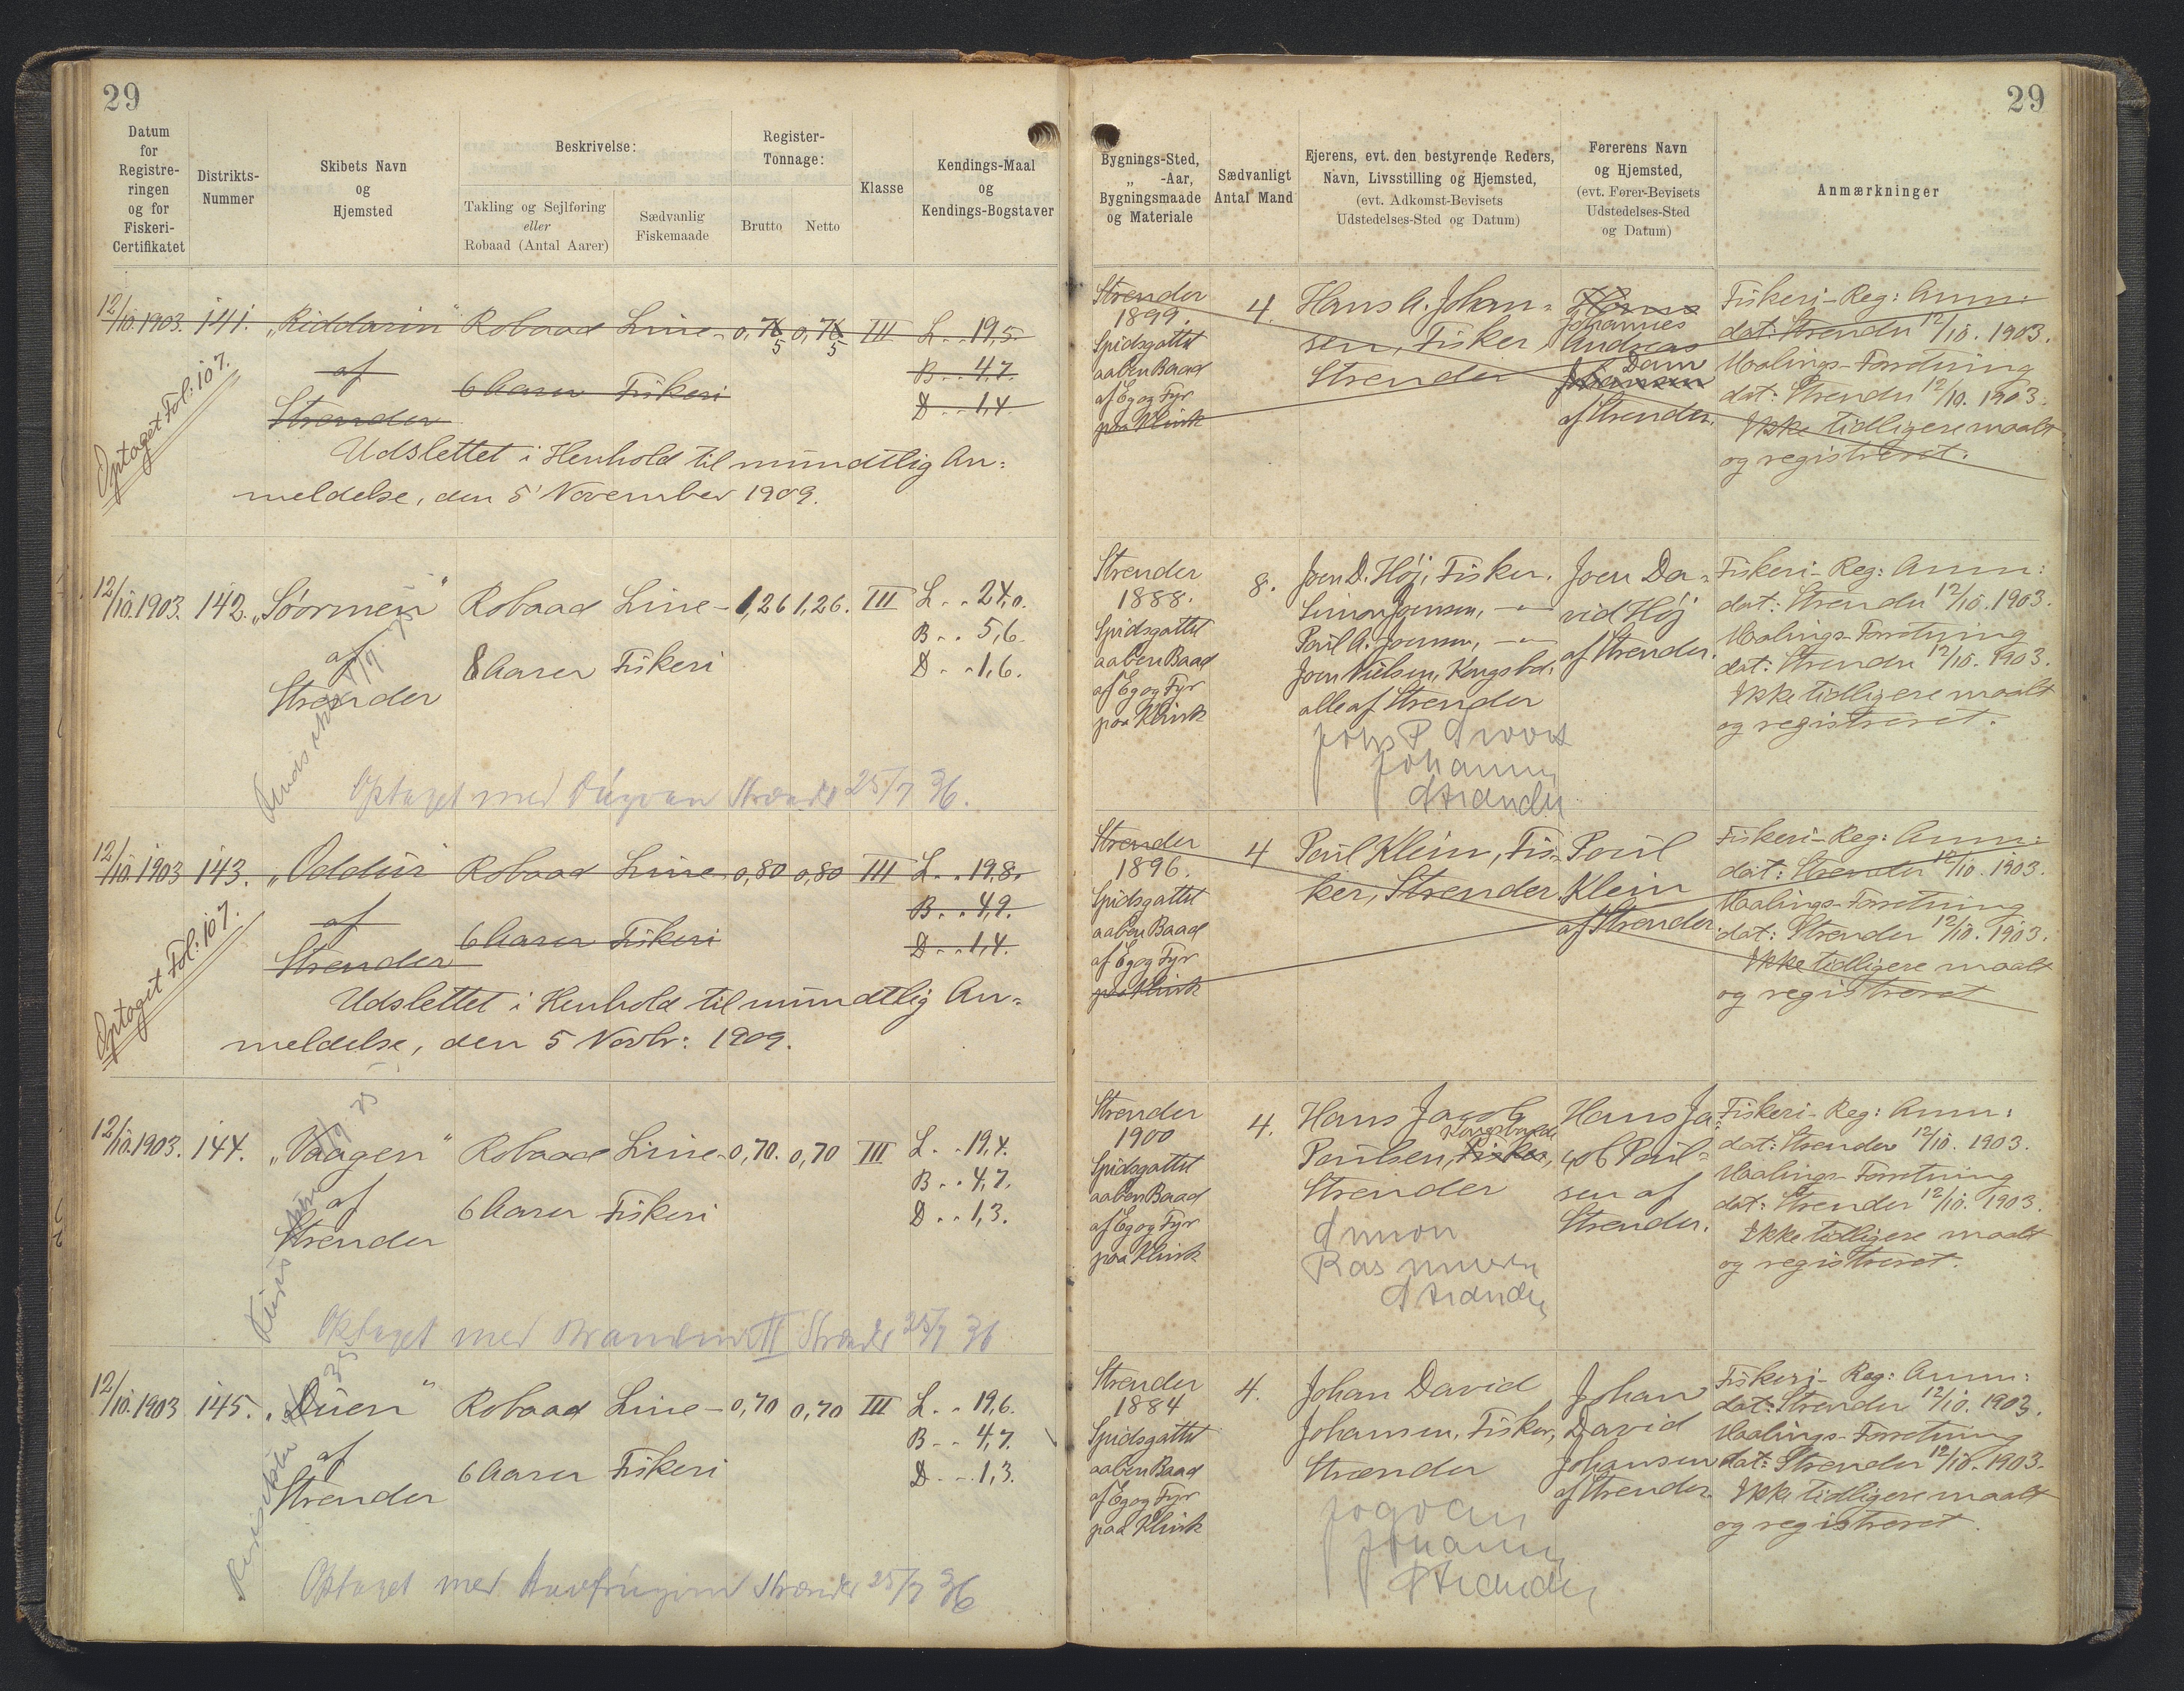 29
Datum
for
Registre-
ringen
og for
Fiskeri-
Certifikatet
Distrikts-
Nummer
Skibets Navn
og
Hjemsted
Beskrivelse:
Takling og Sejlføring
eller
Robaad (Antal Aarer)
Sædvanlig
Fiskemaade
Register-
Tonnage:
Brutto
Netto
Klasse
Kendings-Maal
og
Kendings-Bogstaver
12/10.1903. 141. „Riddarin" Robaad Line- 0,75 0,75 III L. . 19,5.
af 6 Aarer Fiskeri B. . 4,7.
Strender D. . 1,4.
Optaget Fol: 107.
Udslettet i Henhold til mundtlig An-
meldelse, den 5' November 1909.
12/10.1903. 142. „Söormen" Robaad Line- 1,26 1,26. III L. . 24,0.
B. . 5,6.
af 8 Aarer Fiskeri D. . 1,6.
Strender
Optaget med Strender 25/7 36.
12/10.1903 143. „Oddur" Robaad Line- 0,80 0,80 III L. . 19,8.
af B. . 4,9.
Strender 6 Aarer Fiskeri D. . 1,4.
Optaget Fol: 107.
Udslettet i Henhold til mundtlig An-
meldelse, den 5 Novbr: 1909.
12/10.1903. 144. „Vaagen" Robaad Line- 0,70. 0,70 III L. . 19,4.
B. . 4,7.
af 6 Aarer Fiskeri D. . 1,3.
Strender
Optaget med II Strender 25/7 36
12/10.1903 145. „Duen" Robaad Line- 0,70 0,70 III L. . 19,6.
B. . 4,7.
af 6 Aarer Fiskeri D. . 1,3.
Strender
Optaget med Strender 25/7 36
29
Bygnings-Sted,
„ -Aar,
Bygningsmaade
og Materiale
Sædvanligt
Antal Mand
Ejerens, evt. den bestyrende Reders,
Navn, Livsstilling og Hjemsted,
(evt. Adkomst-Bevisets
Udstedelses-Sted og Datum)
Førerens Navn
og Hjemsted,
(evt. Fører-Bevisets
Udstedelses-Sted
og Datum)
Anmærkninger
Strender
1899.
Spidsgattet
aaben Baad
af Eg og Fyr
paa Klink
4.
Hans A. Johan-
sen, Fisker
Strender
Hans
Johannes
Andreas
Dam
Johansen
af Strender.
Fiskeri-Reg: Anm:
dat: Strender 12/10. 1903.
Maalings-Forretning
dat: Strender 12/10. 1903.
Ikke tidligere maalt
og registreret.
Strender
1888.
Spidsgattet
aaben Baad
af Eg og Fyr
paa Klink
8.
Joen D. Höj, Fisker.
Simon Joensen, — " —
Poul A. Joensen, — " —
Joen Nielsen, Kongsbd.
alle af Strender
Johs P
Strender
Joen Da-
vid Höj
af Strender.
Fiskeri-Reg: Anm:
dat: Strender 12/10. 1903.
Maalings-Forretning
dat: Strender 12/10. 1903.
Ikke tidligere maalt
og registreret.
Strender
1896.
Spidsgattet
aaben Baad
af Eg og Fyr
paa Klink
4
Poul Klein, Fis-
ker, Strender.
Poul
Klein
af Strender.
Fiskeri-Reg: Anm:
dat: Strender 12/10. 1903.
Maalings-Forretning
dat: Strender 12/10. 1903.
Ikke tidligere maalt
og registreret
Strender
1900
Spidsgattet
aaben Baad
af Eg og Fyr
paa Klink
4.
Hans Jacob
Kongsbonde
Poulsen, Fisker,
Strender
Simon
Rasmussen
Strender
Hans Ja-
cob Poul-
sen af
Strender.
Fiskeri-Reg: Anm:
dat: Strender 12/10. 1903.
Maalings-Forretning
dat: Strender 12/10. 1903.
Ikke tidligere maalt
og registreret.
Strender
1884
Spidsgattet
aaben Baad
af Eg og Fyr
paa Klink
4.
Johan David
Johansen, Fisker,
Strender
Jogvan
Strender
Johan
David
Johansen
af Strender.
Fiskeri-Reg: Anm:
dat: Strender 12/10. 1903.
Maalings-Forretning
dat: Strender 12/10. 1903.
Ikke tidligere maalt
og registreret.